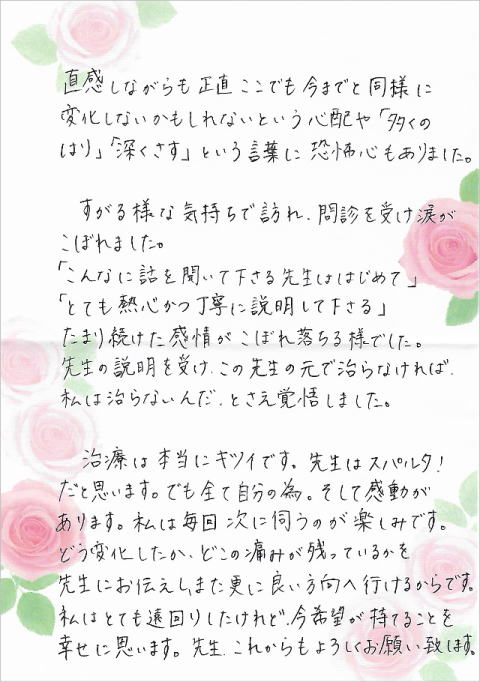 直感しながらも正直ここでも今までと同様に
変化しないかもしれないという心配や「多くの
はり」「深くさす」という言葉に恐怖心もありました。
すがる様な気持ちで訪れ、問診を受け涙が
こぼれました。
「こんなに話を聞いて下さる先生ははじめて」
「とても熱心かつ丁寧に説明して下さる」
たまり続けた感情がこぼれ落ちる様でした。
先生の説明を受け、この先生の元で治らなければ、
私は治らないんだ、とさえ覚悟しました。
治療は本当にキツイです。先生はスパルタ!
だと思います。でも全て自分の為。そして感動が
あります。私は毎回次に伺うのが楽しみです。
どう変化したか、どこの痛みが残っているかを
先生にお伝えし、また更に良い方向へ行けるからです。
私はとても遠回りしたけれど、今希望が持てることを
幸せに思います。先生、これからもよろしくお願い致します。